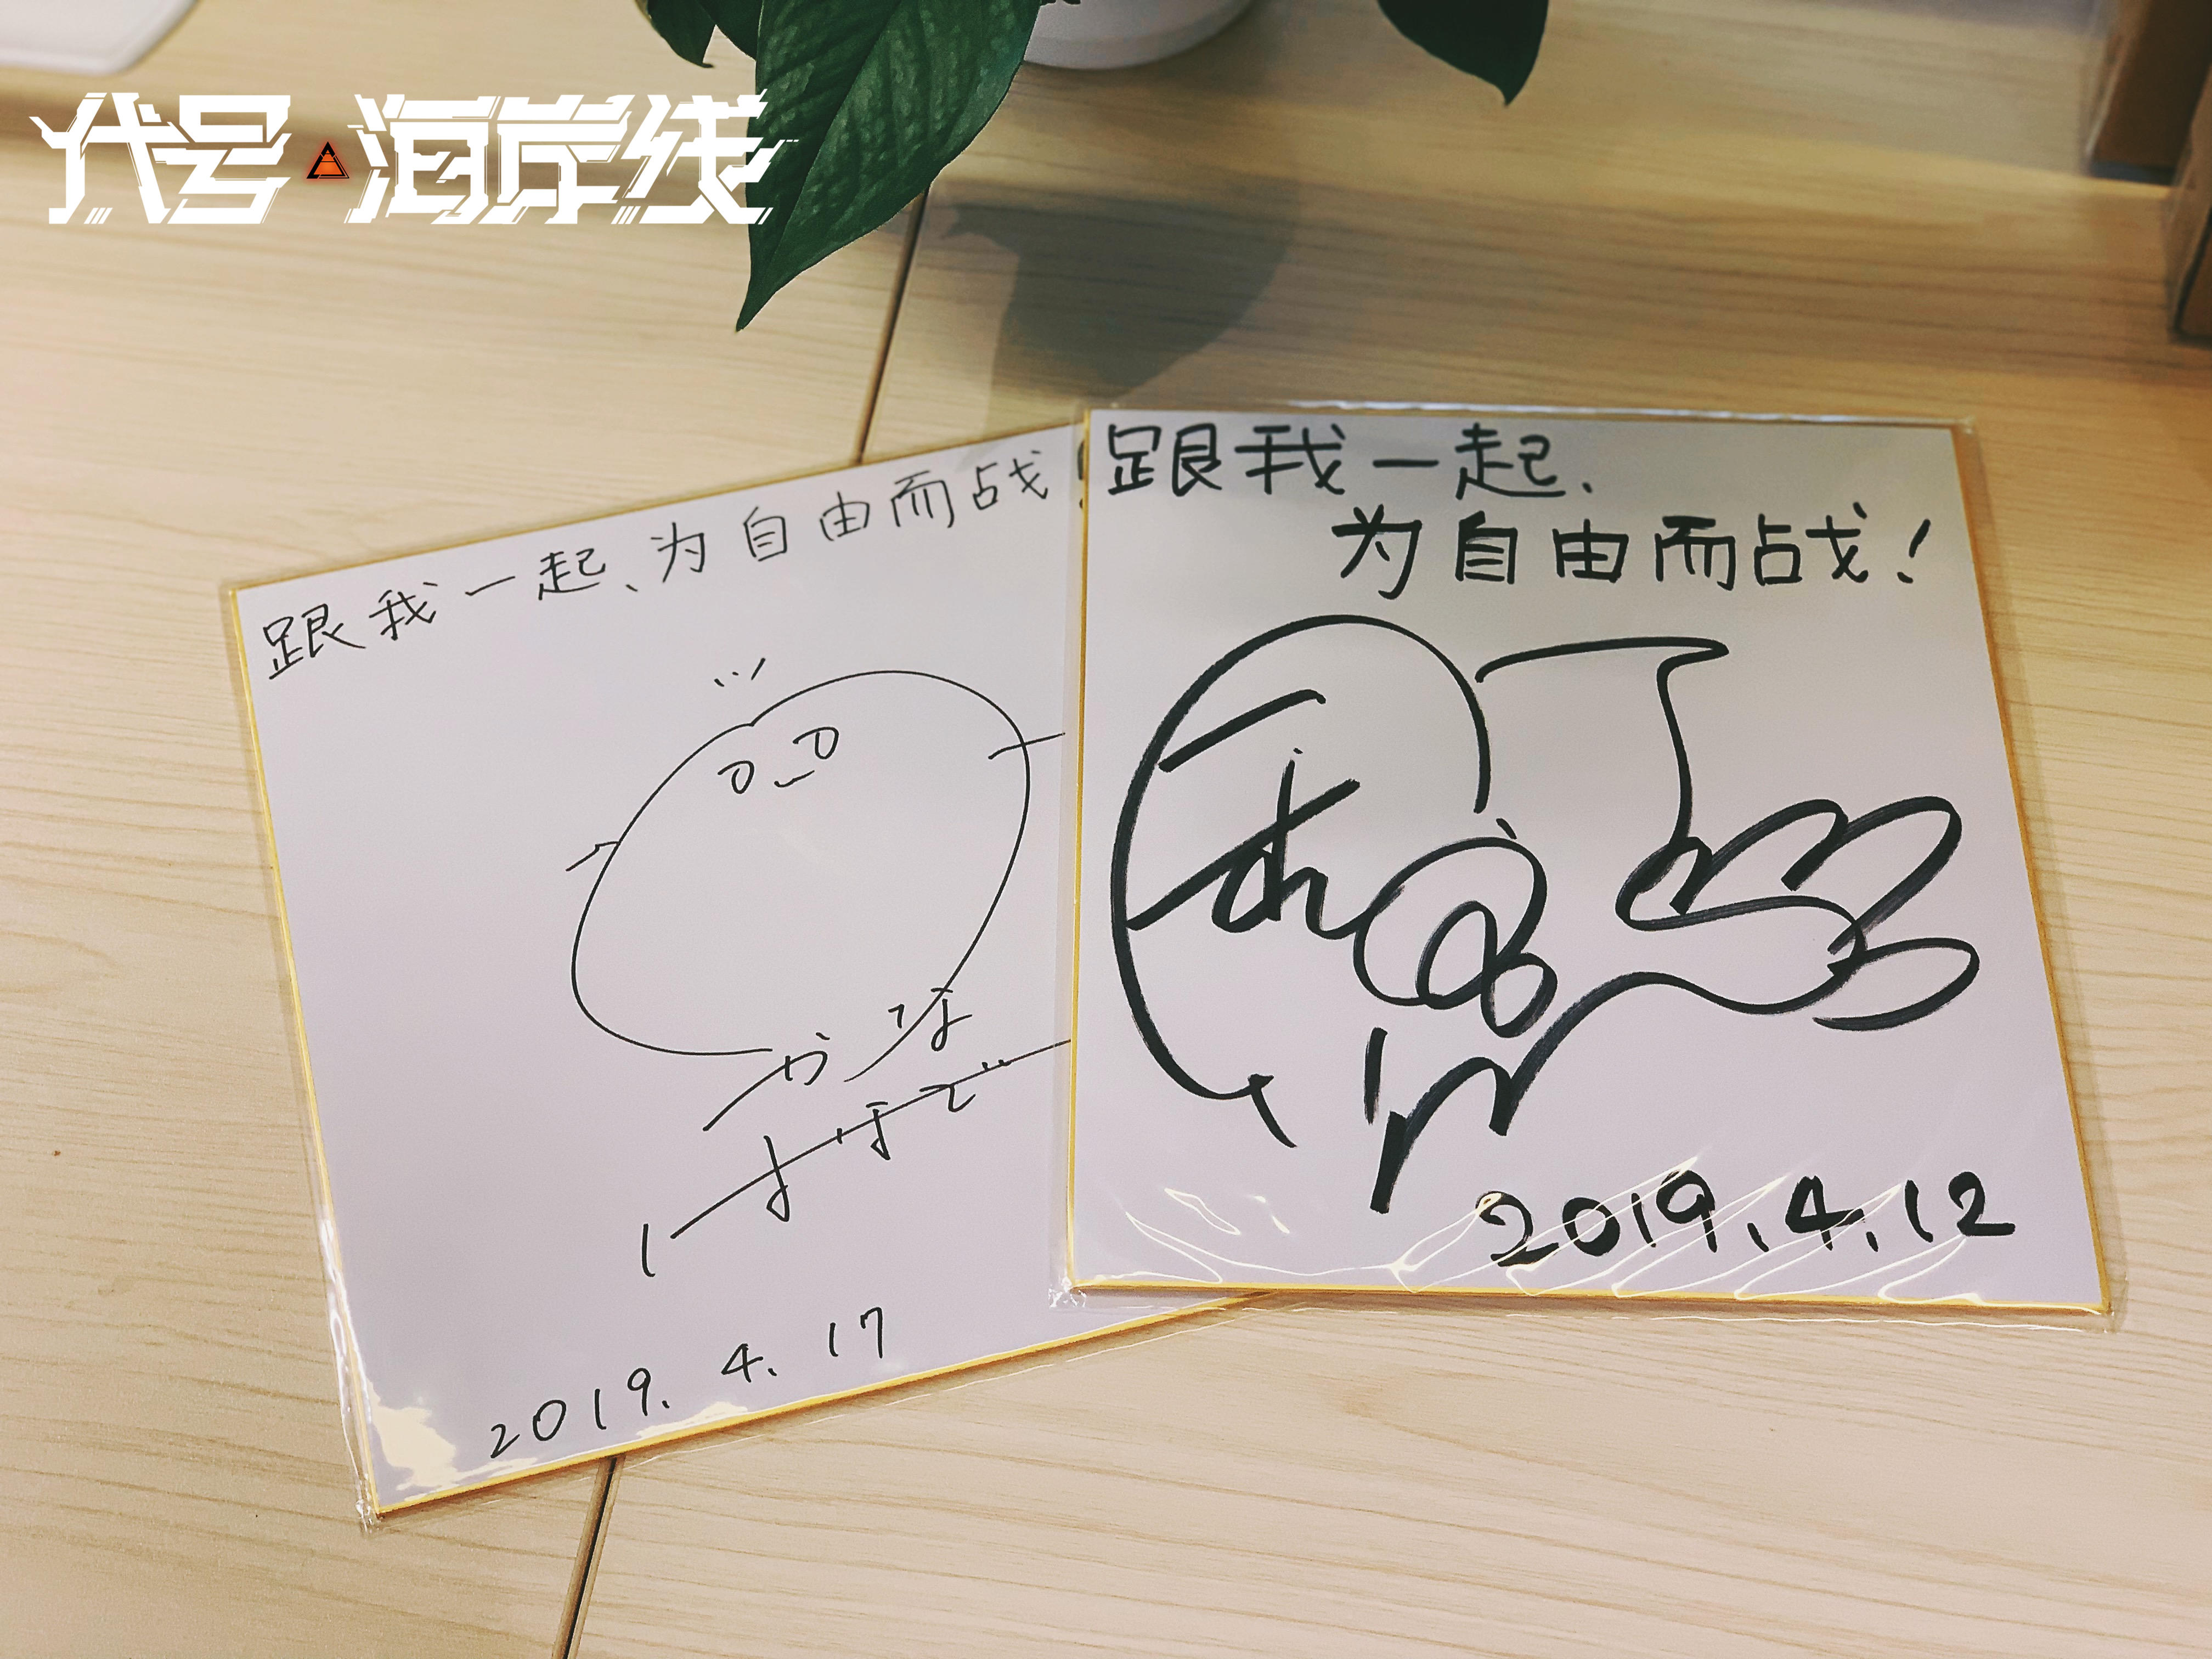 代号 海岸线
跟我一起、为自由而战!
2019.4.17
跟我一起、
为自由而战!
2019.4.12